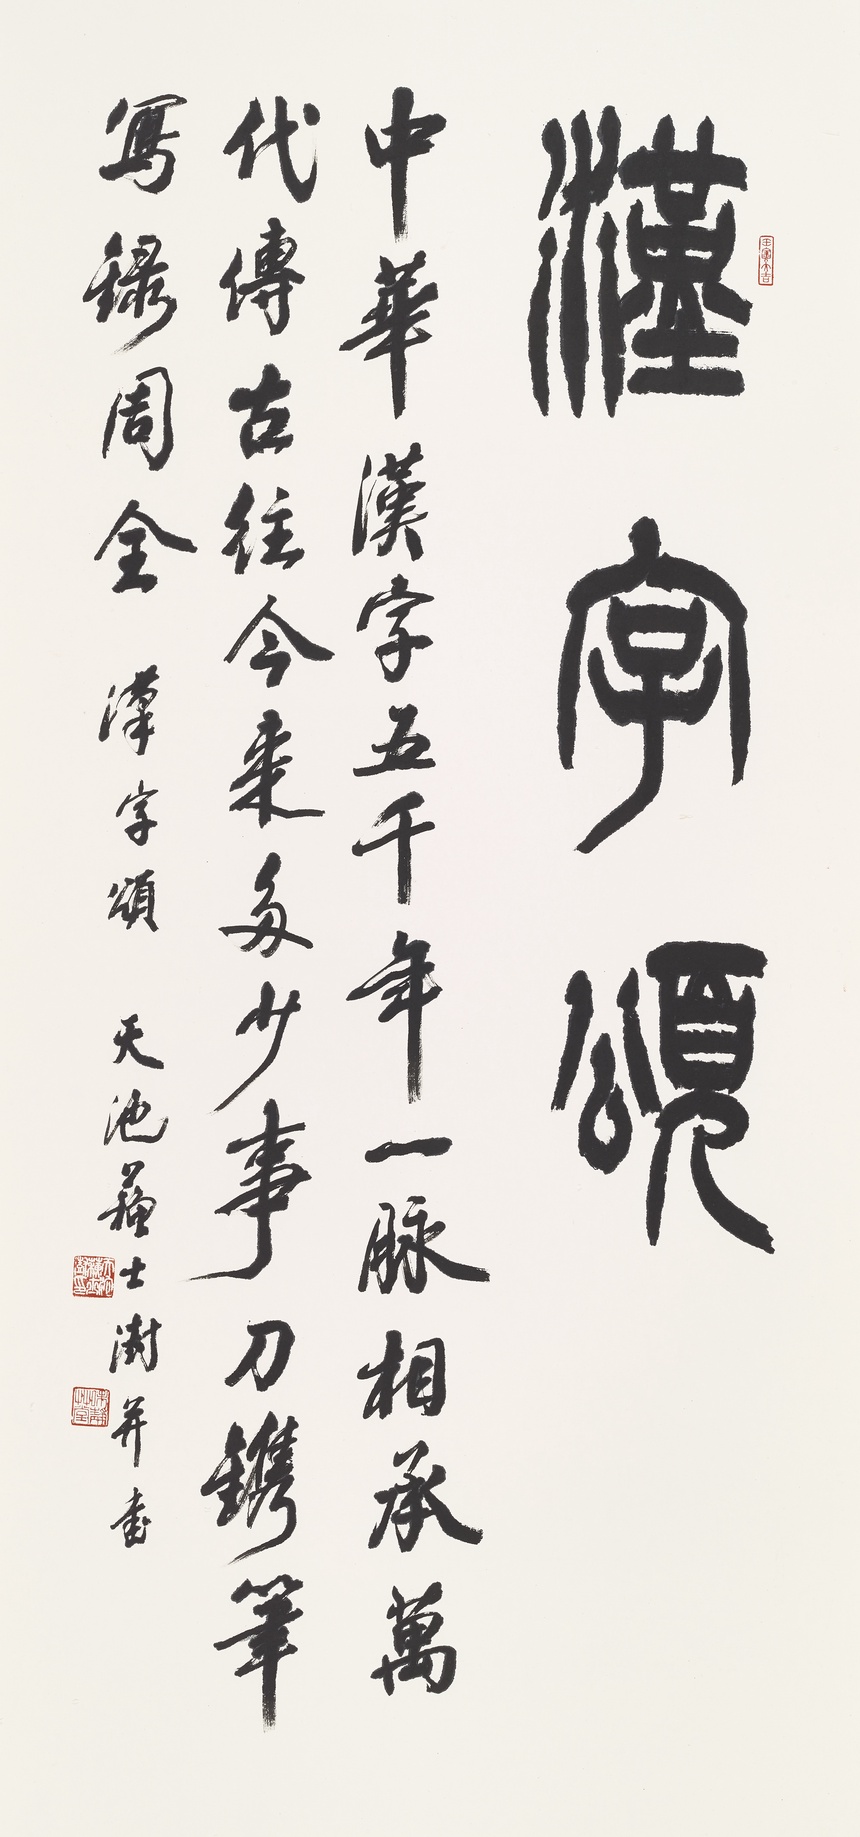 漢字頌
中華漢字五千年一脉相承萬
代傳古往今来多少事刀鐫筆
寫録周全 漢字頌 天池蘇士澍并書